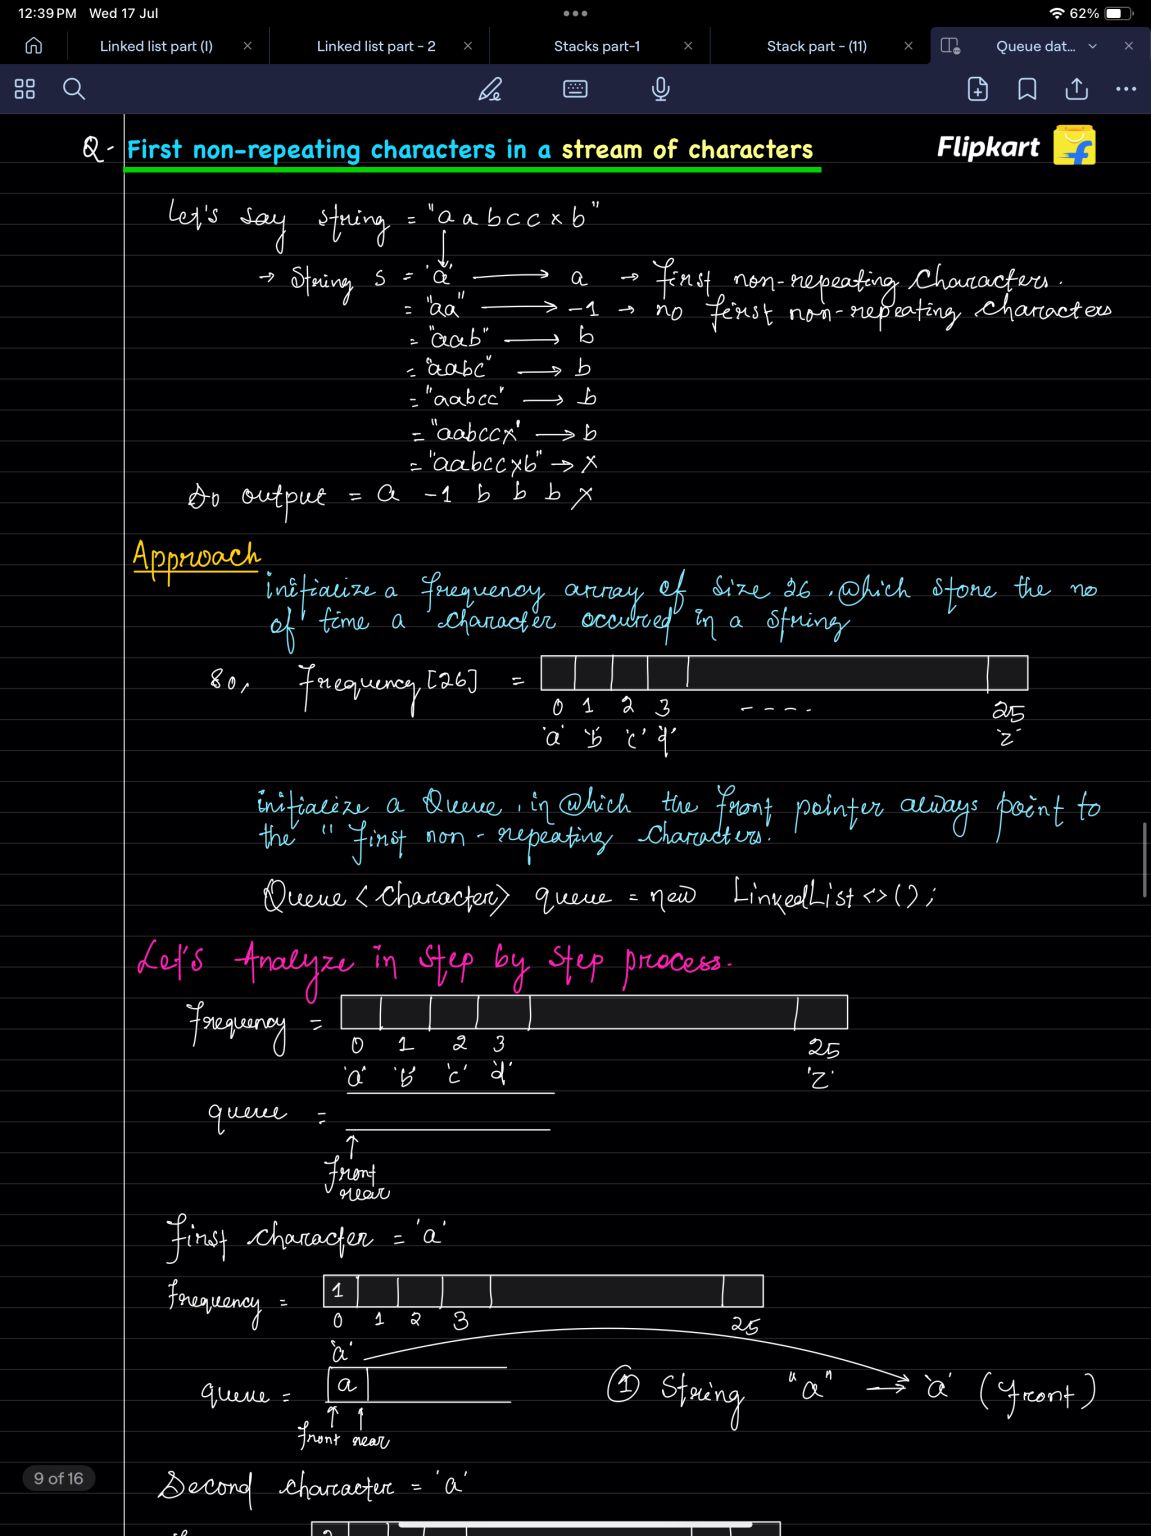 12:39 PM Wed 17 Jul
62%
Linked list part (I) × Linked list part - 2 × Stacks part-1 × Stack part - (11) × Queue dat... ×
Q- First non-repeating characters in a stream of characters
Flipkart
Let's say string = "a a b c c x b"
→ String s = 'a' → a → first non-repeating characters.
= "aa" → -1 → no first non-repeating characters
= "aab" → b
= "aabc" → b
= "aabcc" → b
= "aabccx" → b
= "aabccxb" → x
So output = a -1 b b b x
Approach
initialize a frequency array of size 26, which store the no
of time a character occurred in a string
So, frequency[26] =
0 1 2 3 ---- 25
'a' 'b' 'c' 'd' 'z'
initialize a Queue, in which the front pointer always point to
the "first non-repeating characters.
Queue<Character> queue = new LinkedList<>();
Let's Analyze in step by step process.
frequency =
0 1 2 3 25
'a' 'b' 'c' 'd' 'z'
queue =
front
rear
first character = 'a'
frequency = 1
0 1 2 3 25
'a'
queue = a
① String "a" → 'a' (front)
front rear
9 of 16
Second character = 'a'